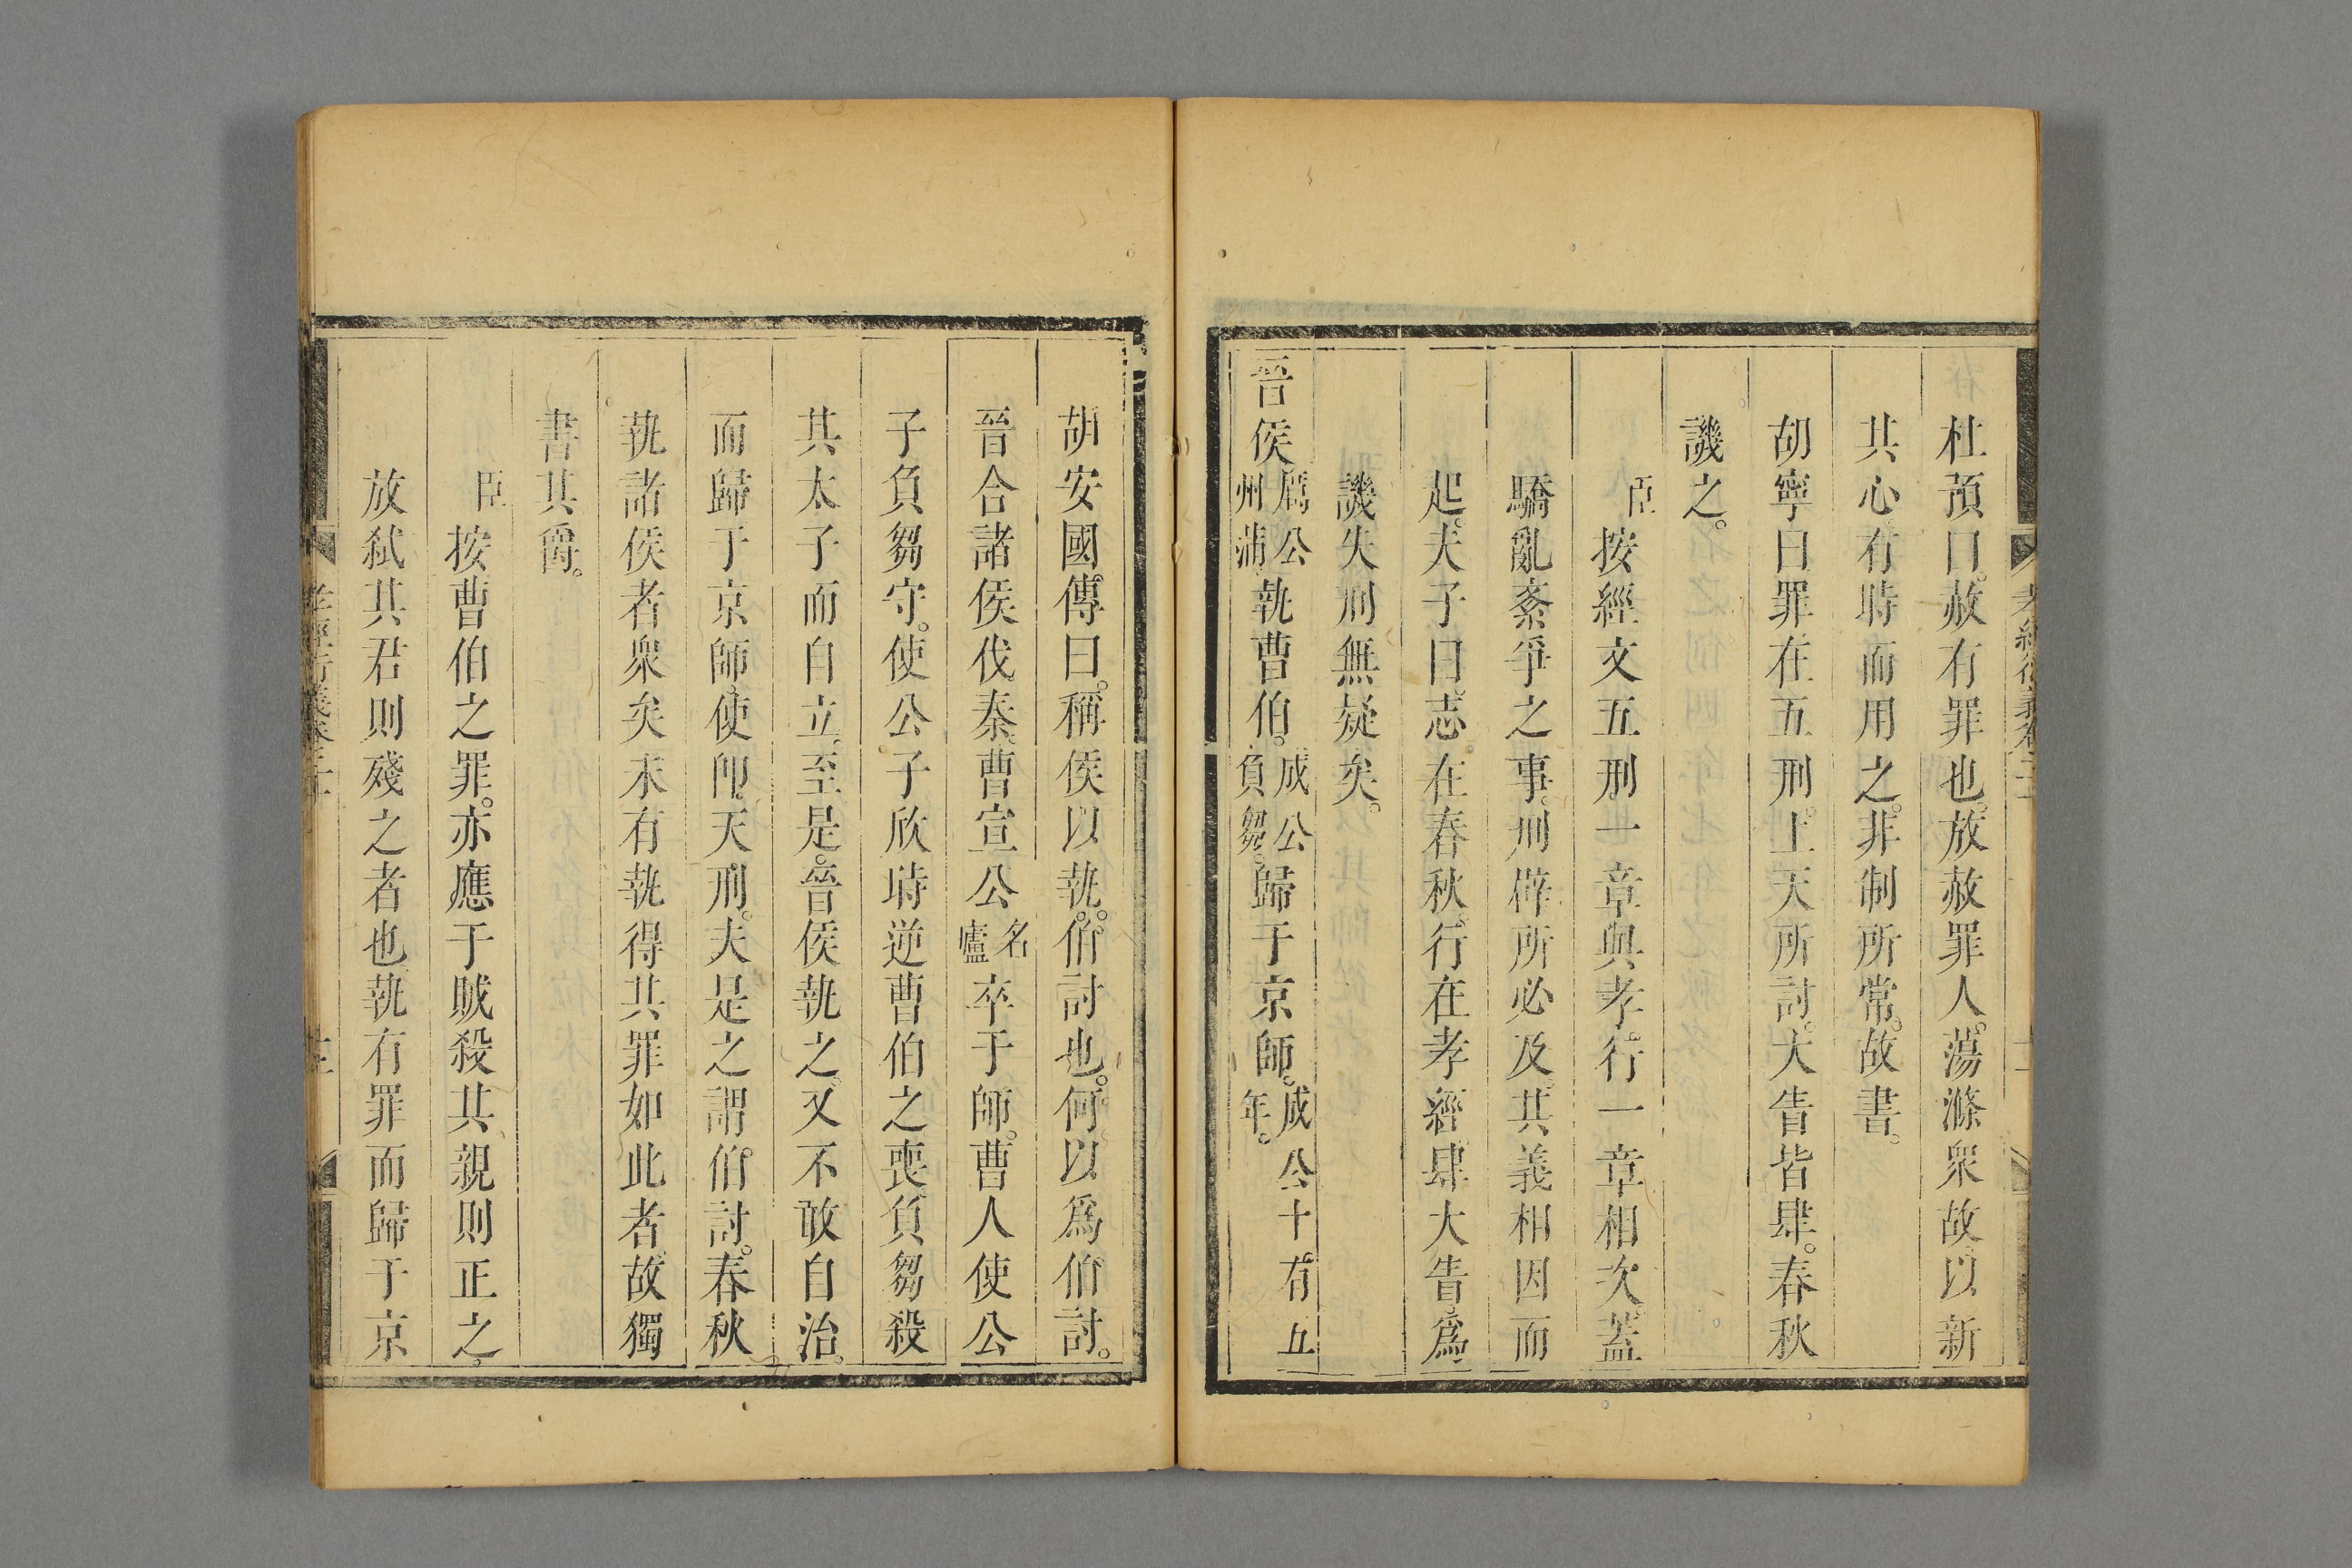 杜預曰。赦有罪也。放赦罪人。蕩滌衆故以新
其心。有時而用之。非制所常。故書。
胡寧曰罪在五刑。上天所討。大眚皆肆。春秋
譏之。
臣按經文五刑一章與孝行一章相次。蓋
驕亂紊爭之事。刑辟所必及。其義相因而
起。夫子曰。志在春秋。行在孝經。肆大眚爲
譏失刑無疑矣。
晉侯厲公州蒲執曹伯。成公負芻。歸于京師。成公十有五年。
胡安國傳曰。稱侯以執。伯討也。何以爲伯討。
晉合諸侯伐秦。曹宣公名廬卒于師。曹人使公
子負芻守。使公子欣時逆曹伯之喪。負芻殺
其太子而自立。至是。晉侯執之。又不敢自治。
而歸于京師。使卽天刑。夫是之謂伯討。春秋
執諸侯者衆矣。未有執得其罪如此者。故獨
書其爵。
臣按曹伯之罪。亦應于賊殺其親則正之。
放弑其君則殘之者也。執有罪而歸于京